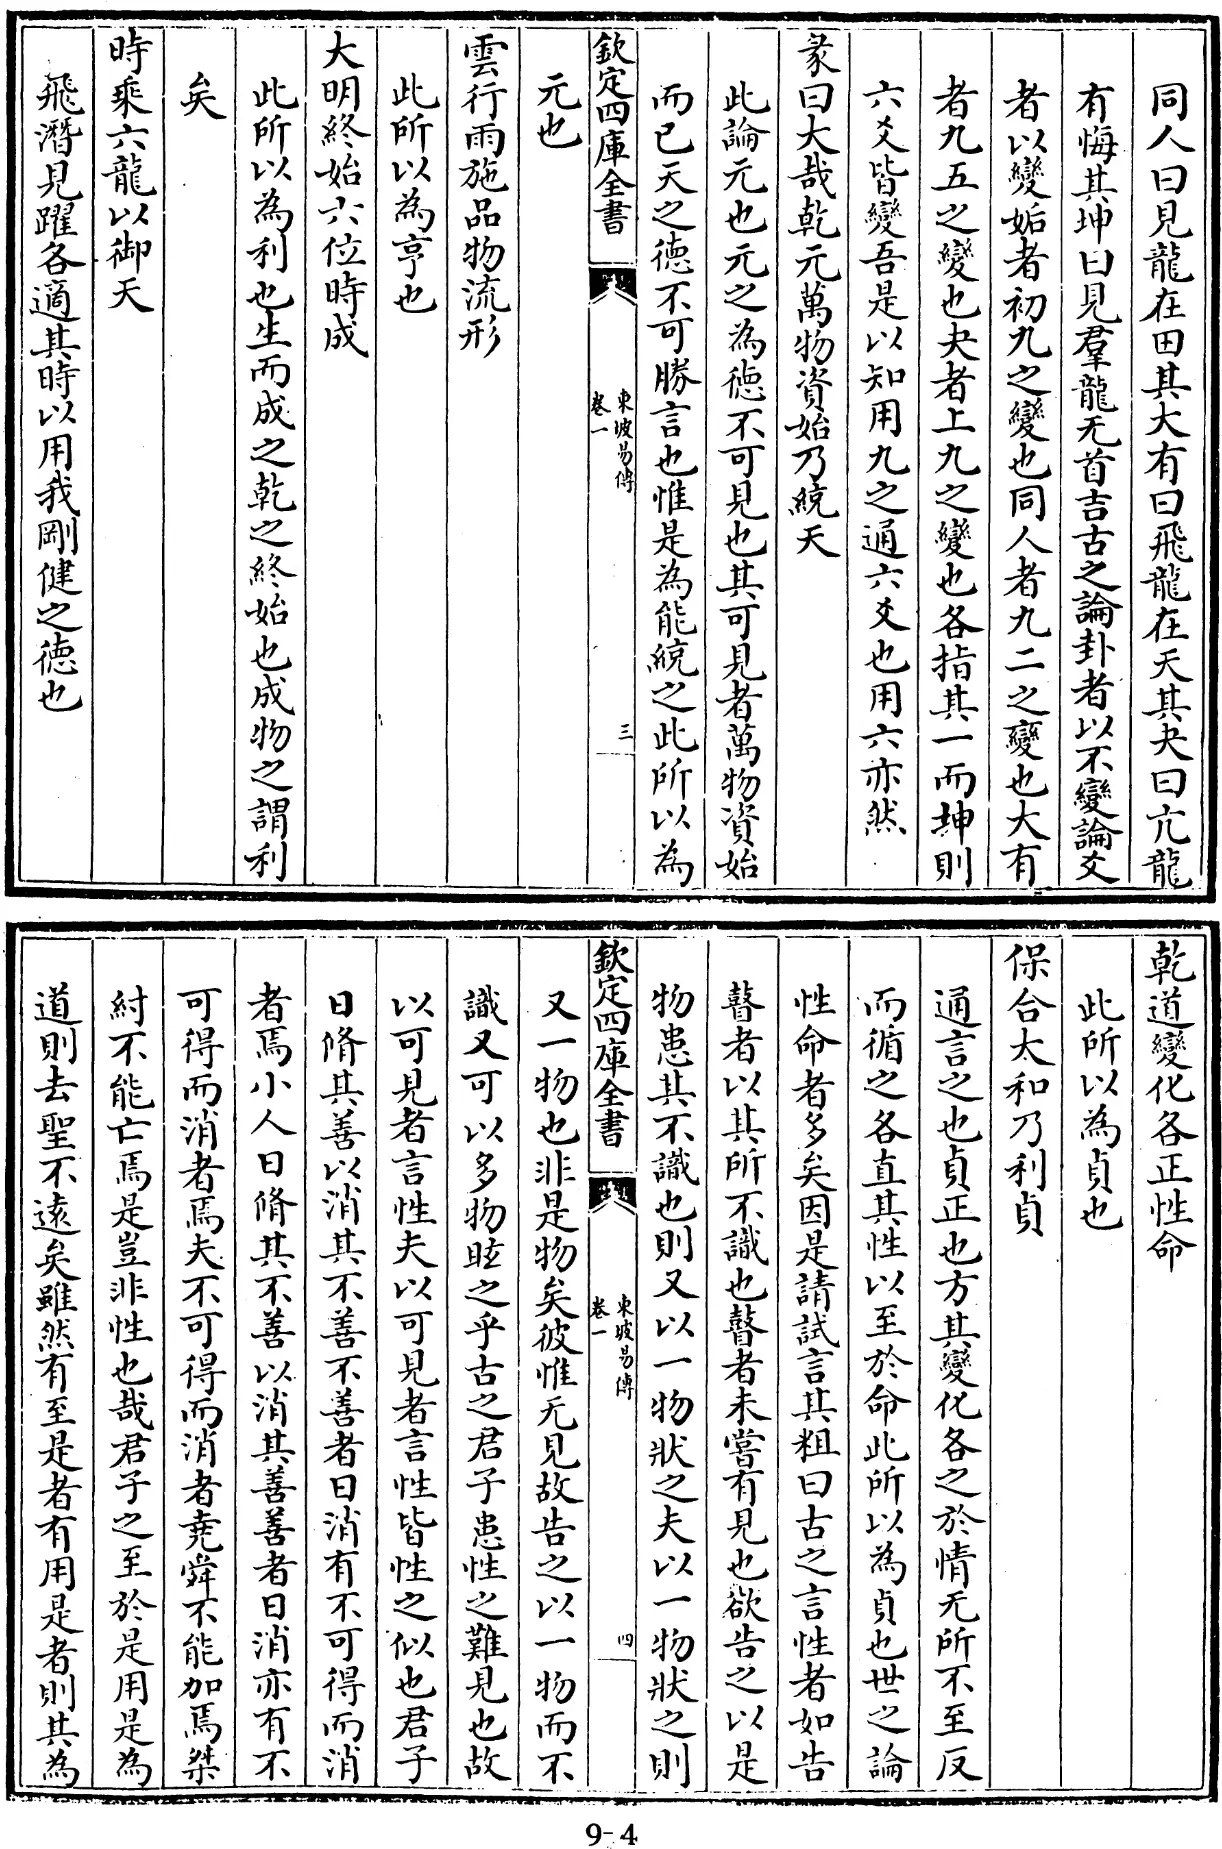 同人曰見龍在田其大有曰飛龍在天其夬曰亢龍
有悔其坤曰見羣龍无首吉古之論卦者以不變論爻
者以變姤者初九之變也同人者九二之變也大有
者九五之變也夬者上九之變也各指其一而坤則
六爻皆變吾是以知用九之通六爻也用六亦然
彖曰大哉乾元萬物資始乃統天
此論元也元之為徳不可見也其可見者萬物資始
而已天之徳不可勝言也惟是為能統之此所以為
欽定四庫全書
東坡易傳
卷一
三
元也
雲行雨施品物流形
此所以為亨也
大明終始六位時成
此所以為利也生而成之乾之終始也成物之謂利
矣
時乘六龍以御天
飛潛見躍各適其時以用我剛健之徳也
乾道變化各正性命
此所以為貞也
保合太和乃利貞
通言之也貞正也方其變化各之於情无所不至反
而循之各直其性以至於命此所以為貞也世之論
性命者多矣因是請試言其粗曰古之言性者如告
瞽者以其所不識也瞽者未嘗有見也欲告之以是
物患其不識也則又以一物狀之夫以一物狀之則
欽定四庫全書
東坡易傳
卷一
四
又一物也非是物矣彼惟无見故告之以一物而不
識又可以多物眩之乎古之君子患性之難見也故
以可見者言性夫以可見者言性皆性之似也君子
日脩其善以消其不善不善者日消有不可得而消
者焉小人日脩其不善以消其善善者日消亦有不
可得而消者焉夫不可得而消者堯舜不能加焉桀
紂不能亡焉是豈非性也哉君子之至於是用是為
道則去聖不遠矣雖然有至是者有用是者則其為
9-4